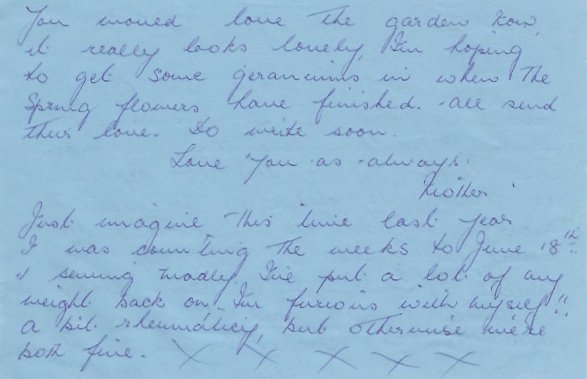 You would love the garden now,
it really looks lovely, I'm hoping
to get some geraniums in when the
Spring flowers have finished. All send
their love. Do write soon.
Love you as always.
Mother.
Just imagine this time last year
I was counting the weeks to June 18th.
& sewing madly. I've put a lot of my
weight back on. I'm furious with myself!!
a bit rheumaticy, but otherwise we're
both fine. X X X X X